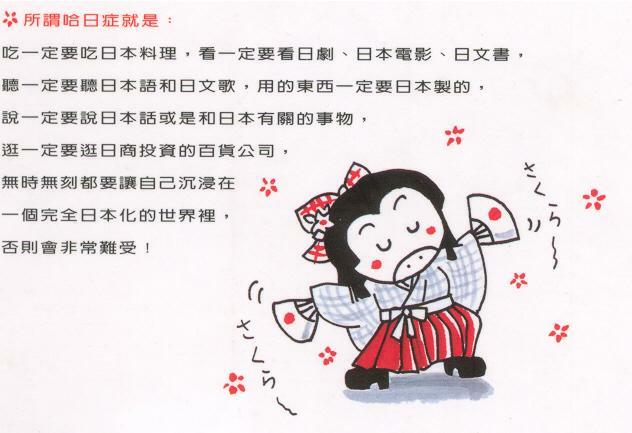 所謂哈日症就是：
吃一定要吃日本料理，看一定要看日劇、日本電影、日文書，
聽一定要聽日本語和日文歌，用的東西一定要日本製的，
說一定要說日本話或是和日本有關的事物，
逛一定要逛日商投資的百貨公司，
無時無刻都要讓自己沉浸在
一個完全日本化的世界裡，
否則會非常難受！
さくら～
さくら～